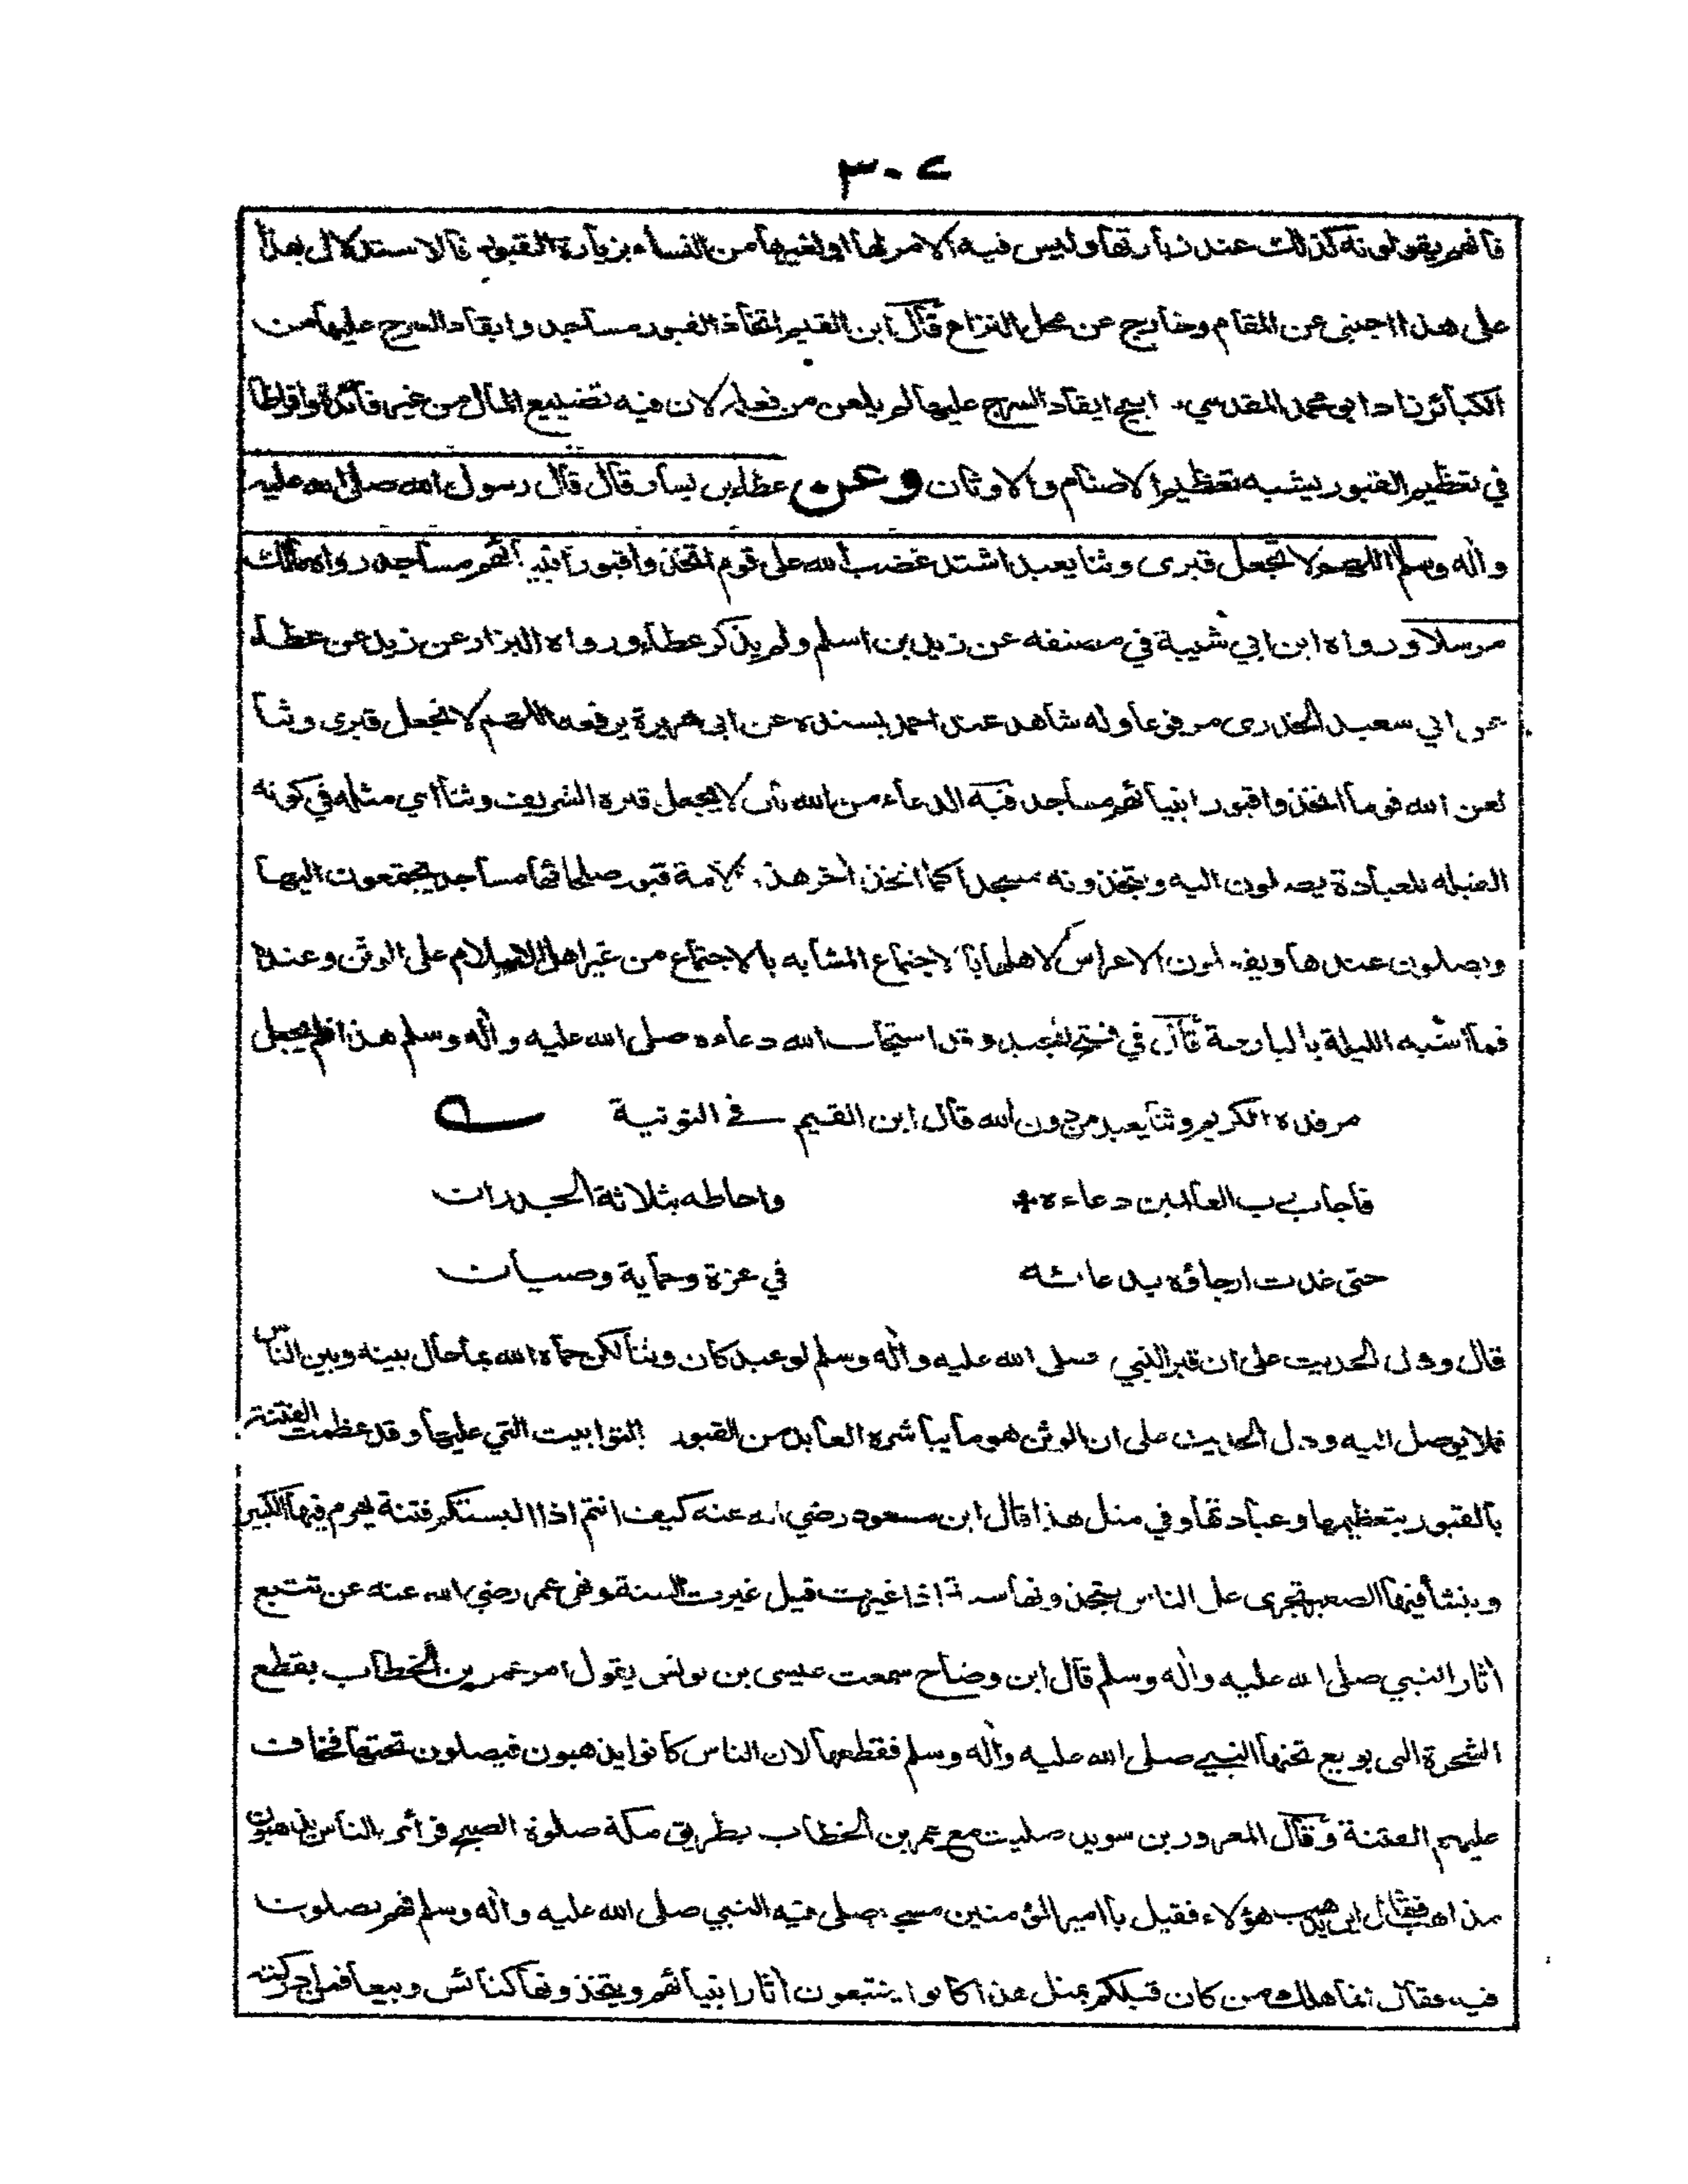 ٣٠٤
فانهم يقولونه كذلك عند زيارتها وليس فيه الامر لها او لغيرها من النساء بزيارة القبور فالاستدلال بهذا
على هذا اجنبي عن المقام وخارج عن محل النزاع قال ابن القيم اتخاذ القبور مساجد وايقاد السرج عليها من
الكبائر زاد ابو محمد المقدسي ابيح ايقاد السرج عليها لم يلعن من فعله لان فيه تضييع المال من غير فائدة وافراطا
في تعظيم القبور يشبه تعظيم الاصنام والاوثان وعن عطاء بن يسار قال قال رسول الله صلى الله عليه
واٰله وسلم اللهم لا تجعل قبرى وثنا يعبد اشتد غضب الله على قوم اتخذوا قبور انبيائهم مساجد رواه مالك
مرسلا ورواه ابن ابي شيبة في مصنفه عن زيد بن اسلم ولم يذكر عطاء ورواه البزار عن زيد عن عطاء
عن ابي سعيد الخدرى مرفوعا وله شاهد عند احمد بسنده عن ابى هريرة يرفعه اللهم لا تجعل قبرى وثنا
لعن الله قوما اتخذوا قبور انبيائهم مساجد فيه الدعاء من الله بان لا يجعل قبره الشريف وثنا اي مثله في كونه
القبله للعبادة يصلون اليه ويتخذونه مسجدا كما اتخذ اٰخر هذه الامة قبور صلحائها مساجد يجتمعون اليها
ويصلون عندها ويفعلون الاعراس لاهلها بالاجتماع المشابه بالاجتماع من غير اهل الاسلام على الوثن وعنده
فما اشبه الليلة بالبارحة قال في فتح المجيد وقد استجاب الله دعاءه صلى الله عليه واٰله وسلم هذا فلم يجعل
مرقده الكريم وثنا يعبد من دون الله قال ابن القيم في النونية
فاجاب رب العالمين دعاءه * واحاطه بثلاثة الجدرات
حتى غدت ارجاؤه بدعائه في عزة وحماية وصيات
قال ودل الحديث على ان قبر النبي صلى الله عليه واٰله وسلم لو عبد كان وثنا لكن حماه الله بما حال بينه وبين الناس
فلا يوصل اليه ودل الحديث على ان الوثن هو ما يباشره العابد من القبور التوابيت التي عليها وقد عظمت الفتنة
بالقبور بتعظيمها وعبادتها وفي مثل هذا قال ابن مسعود رضي الله عنه كيف انتم اذا البستكم فتنة يهرم فيها الكبير
وينشأ فيها الصغير تجرى على الناس يتخذونها سنة اذا غيرت قيل غيرت السنة ونهى عمر رضي الله عنه عن تتبع
اٰثار النبي صلى الله عليه واٰله وسلم قال ابن وضاح سمعت عيسى بن يونس يقول امر عمر بن الخطاب بقطع
الشجرة التى بويع تحتها النبي صلى الله عليه واٰله وسلم فقطعها لان الناس كانوا يذهبون فيصلون تحتها فخاف
عليهم الفتنة وقال المعرور بن سويد صليت مع عمر بن الخطاب بطريق مكة صلوة الصبح فرأى الناس يذهبون
مذاهب فقال اين يذهب هؤلاء فقيل يا امير المؤمنين مسجد صلى فيه النبي صلى الله عليه واٰله وسلم فهم يصلون
فيه فقال انما هلك من كان قبلكم بمثل هذا كانوا يتتبعون اٰثار انبيائهم ويتخذونها كنائس وبيعا فمن ادركته